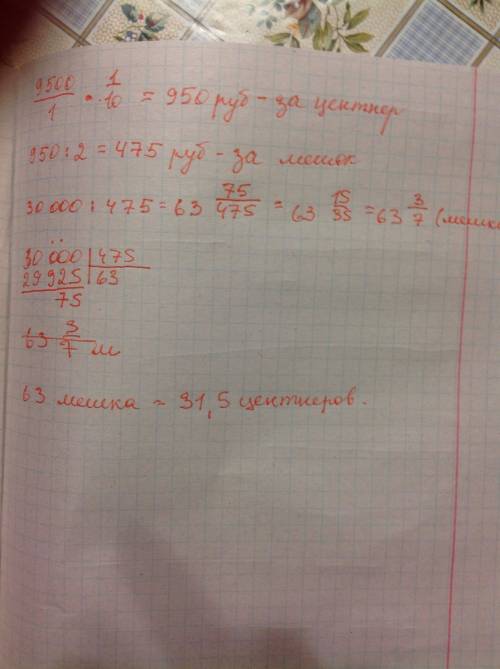 9500/1 · 1/10 = 950 руб - за центнер
950 : 2 = 475 руб - за мешок
30 000 : 475 = 63 75/475 = 63 15/35 = 63 3/7 (мешка
30 000 | 475
29925 | 63
75
63 3/7 м
63 мешка = 31,5 центнеров.